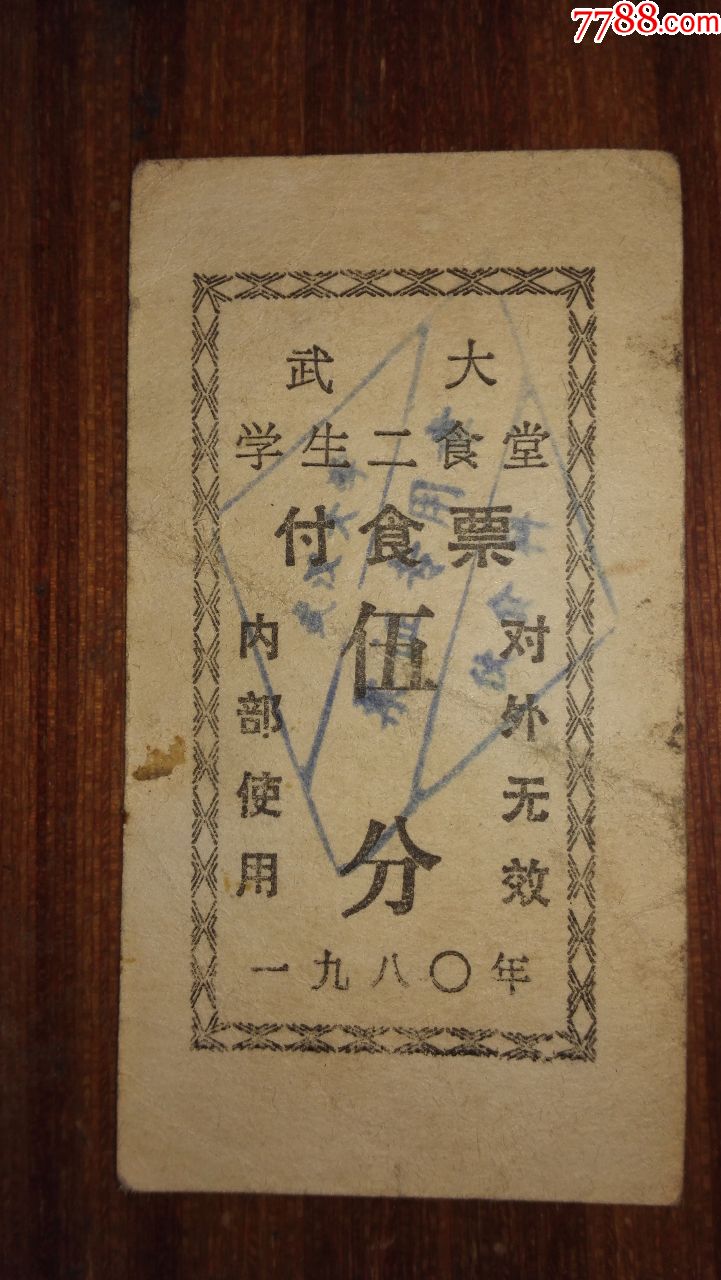 7788.com
武 大
学生二食堂
付食票
伍
分
内部使用
对外无效
一九八〇年